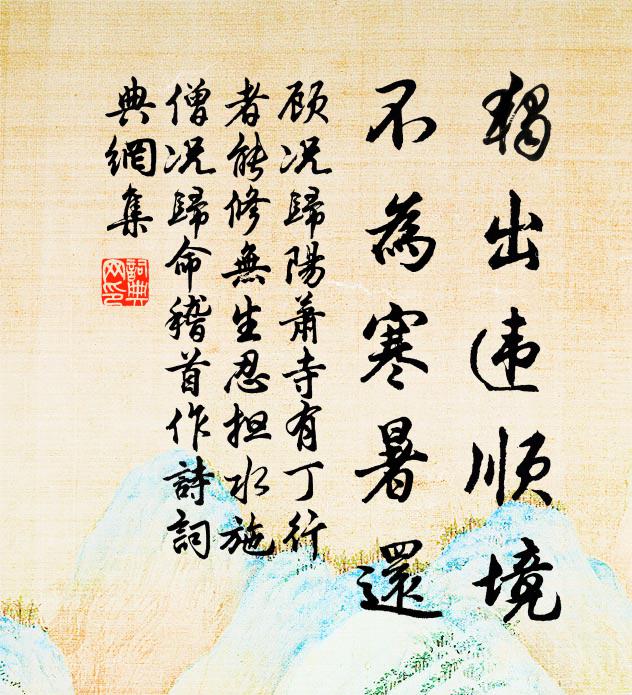 獨出违順境
不為寒暑還
顾况歸陽蕭寺有丁行
者能修無生忍担水施
僧况歸命稽首作詩詞
典網集
詞典
网印